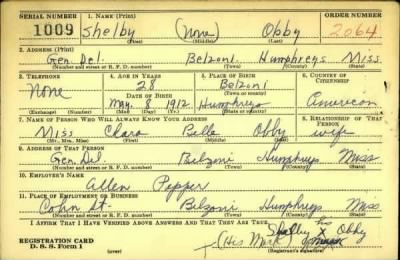 SERIAL NUMBER 1. NAME (Print) ORDER NUMBER
1009 Shelby (None) Obby 2064
(First) (Middle) (Last)
2. ADDRESS (Print)
Gen. Del. Belzoni Humphreys Miss
(Number and street or R. F. D. number) (Town) (County) (State)
3. TELEPHONE 4. AGE IN YEARS 5. PLACE OF BIRTH 6. COUNTRY OF CITIZENSHIP
None 28 Belzoni
DATE OF BIRTH (Town or county)
May 8 1912 Humphreys American
(Exchange) (Number) (Mo.) (Day) (Yr.) (State or country)
7. NAME OF PERSON WHO WILL ALWAYS KNOW YOUR ADDRESS 8. RELATIONSHIP OF THAT PERSON
Miss Clara Bella Obby wife
(Mr., Mrs., Miss) (First) (Middle) (Last)
9. ADDRESS OF THAT PERSON
Gen. Del. Belzoni Humphreys Miss
(Number and street or R. F. D. number) (Town) (County) (State)
10. EMPLOYER'S NAME
Allen Pepper
11. PLACE OF EMPLOYMENT OR BUSINESS
Cohn St. Belzoni Humphreys Miss
(Number and street or R. F. D. number) (Town) (County) (State)
I AFFIRM THAT I HAVE VERIFIED ABOVE ANSWERS AND THAT THEY ARE TRUE.
Shelby X Obby
REGISTRATION CARD (His Mark)
D. S. S. Form 1 (over) (Registrant's signature)